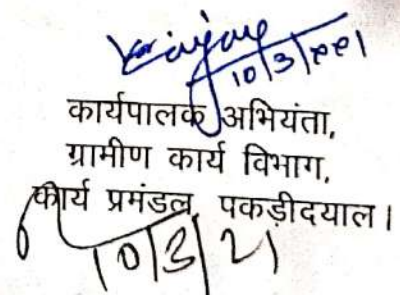 10/3/2021
कार्यपालक अभियंता,
ग्रामीण कार्य विभाग,
कार्य प्रमंडल, पकड़ीदयाल।
10/3/21